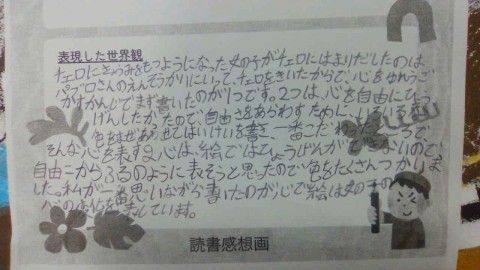 表現した世界観
チェロにきょうみをもつようになった女の子がチェロにはまりだしたのは、
パブロさんのえんそうかいにいって、チェロをきいたからで、心をゆれうご
がすかんじてまず書いたのが1つです。2つは、心を自由にひょう
げんしたかったので、自由さをあらわすために、いろいろな
色をまぜあわせてはいけいを書き、一番こだわったところで
そんな心を表す心は、絵ではひょうげんができないので、
自由にからふるのように表そうと思ったので色をたくさんつかいま
した。私が一番思いながら書いたのが心で絵は女の子の
心の変化を表しています。
読書感想画